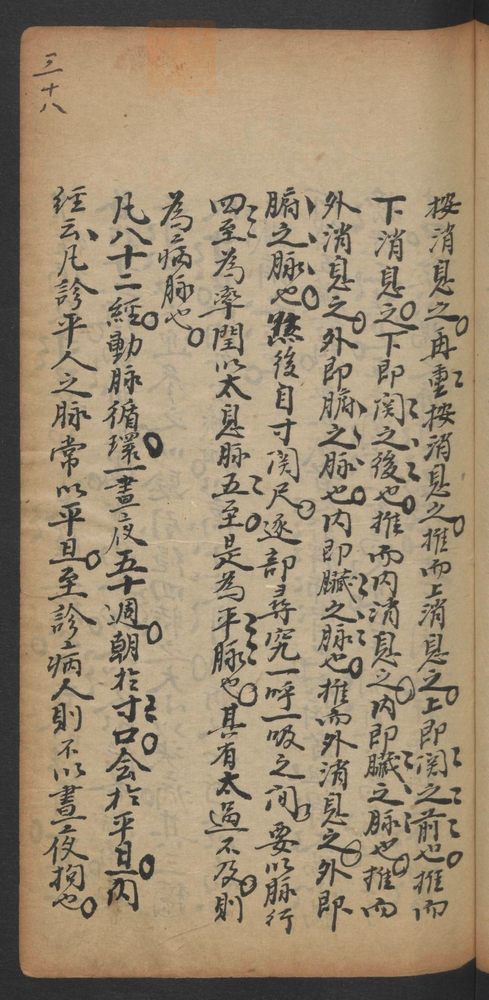 三十八
按消息之再重按消息之推而上消息之上即関之前也推而
下消息之下即関之後也推而内消息之内即臓之脉也推而
外消息之外即腑之脉也内即臓之脉也推而外消息之外即
腑之脉也然後自寸関尺逐部尋究一呼一吸之间要以脉行
四至為率閏以太息脉五至是為平脉也其有太過不及則
為病脉也
凡八十二經動脉循環一晝夜五十週朝於寸口会於平旦内
經云凡診平人之脉常以平旦至診病人則不以晝夜拘也